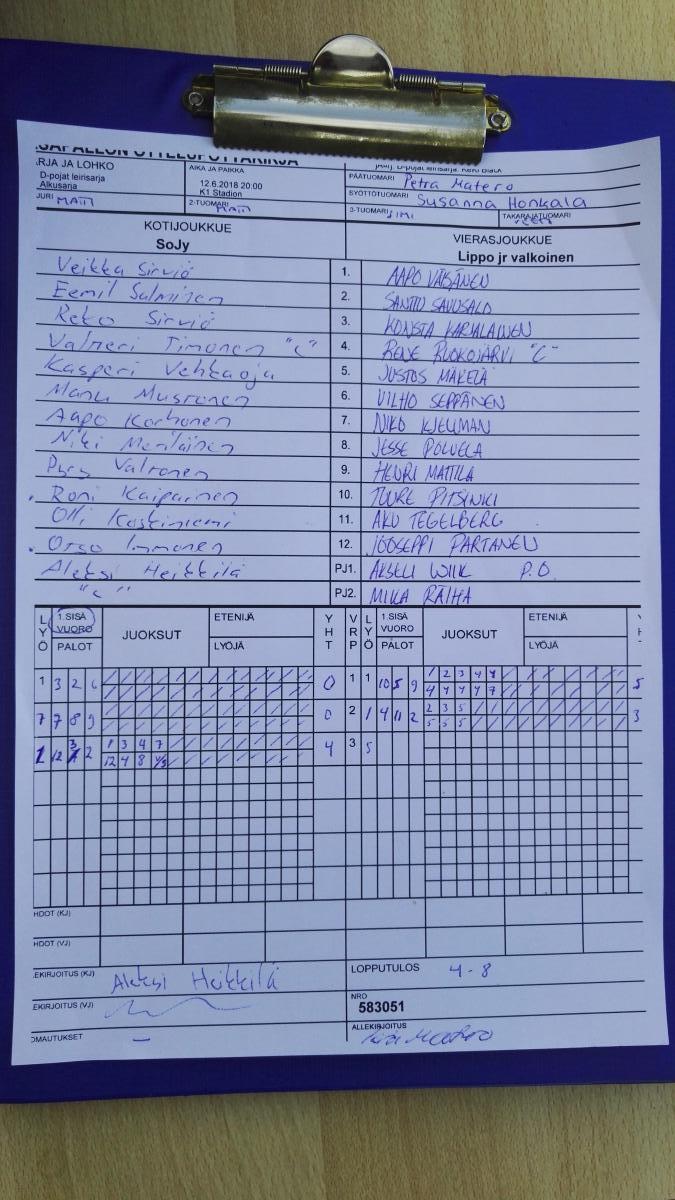 SARJA JA LOHKO
D-pojat leirisarja
Alkusarja
AIKA JA PAIKKA
12.6.2018 20:00
K1 Stadion
PÄÄTUOMARI Petra Matero
SYÖTTÖTUOMARI Susanna Honkala
JURI MATTI
2-TUOMARI MATTI
3-TUOMARI
TAKARAJATUOMARI
KOTIJOUKKUE
SoJy
VIERASJOUKKUE
Lippo jr valkoinen
Veikka Sirviö 1. AAPO VÄISÄNEN
Eemil Salminen 2. SANTTU SAVUSALO
Reko Sirviö 3. KONSTA KARJALAINEN
Valtteri Timonen "C" 4. RENE RUOKOJÄRVI "C"
Kasperi Vehkaoja 5. JUSTUS MÄKELÄ
Manu Mustonen 6. VILHO SEPPÄNEN
Aapo Korhonen 7. NIKO KJELLMAN
Niki Meriläinen 8. JESSE POLVELA
Pyry Valtonen 9. HENRI MATTILA
Roni Kaiparinen 10. TUURE PITSINKI
Olli Koskiniemi 11. AKU TEGELBERG
Otso Immonen 12. JOOSEPPI PARTANEN
Aleksi Heikkilä PJ1. AKSELI WIIK P.O.
"C" PJ2. MIKA RÄIHÄ
LYÖ 1.SISÄ VUORO PALOT JUOKSUT ETENIJÄ LYÖJÄ YHT VRP LYÖ 1.SISÄ VUORO PALOT JUOKSUT ETENIJÄ LYÖJÄ
1 3 2 6 0 1 1 10 5 9 1 2 3 4 4 5
4 4 4 4 7
7 7 8 9 0 2 1 4 11 2 2 3 5 3
5 5 5
1 12 3 2 1 3 4 7 4 3 5
12 4 8 4/5
HDOT (KJ)
HDOT (VJ)
EKIRJOITUS (KJ) Aleksi Heikkilä
LOPPUTULOS 4-8
EKIRJOITUS (VJ)
NRO
583051
OMAUTUKSET –
ALLEKIRJOITUS